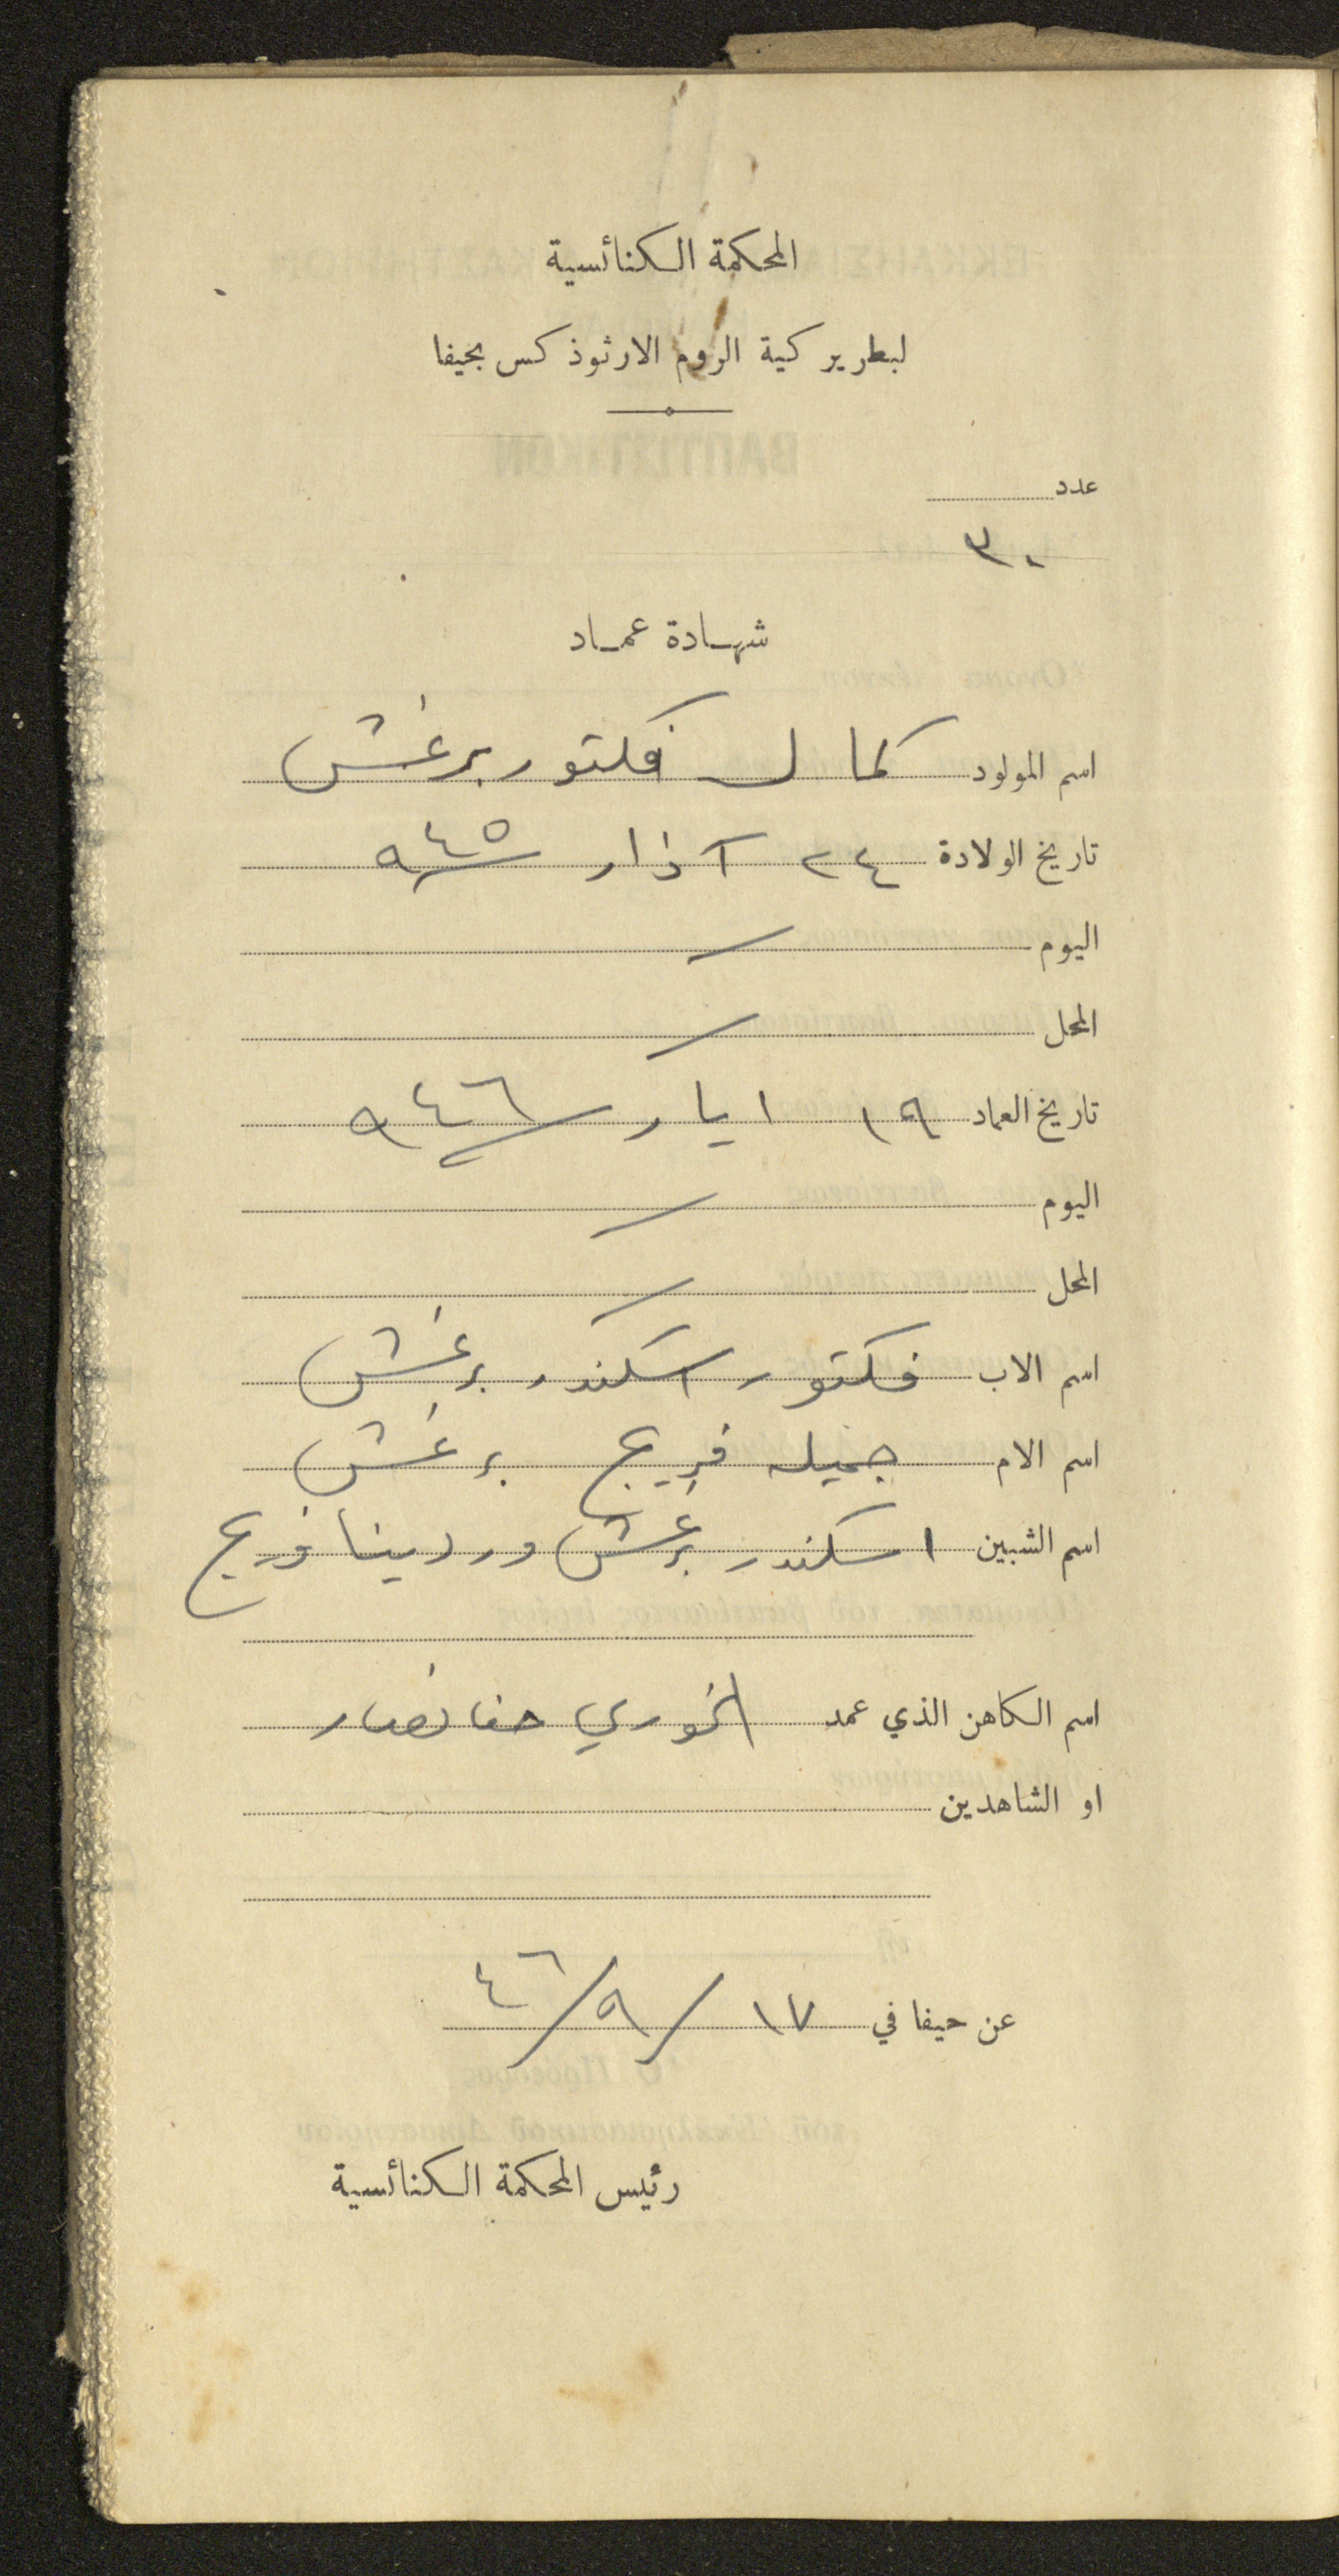 المحكمة الكنائسية
لبطريركية الروم الارثوذكس بحيفا
عدد
٣٠
شهادة عماد
اسم المولود كمال فكتور برغش
تاريخ الولادة ٢٤ آذار ٩٤٥
اليوم /
المحل /
تاريخ العماد ١٩ ايار ٩٤٦
اليوم /
المحل /
اسم الاب فكتور اسكندر برغش
اسم الام جميله فريج برغش
اسم الشبين اسكندر برغش وردينا فريج
اسم الكاهن الذي عمد الخوري حنا نصار
او الشاهدين
عن حيفا في ١٧/٩/٤٦
رئيس المحكمة الكنائسية